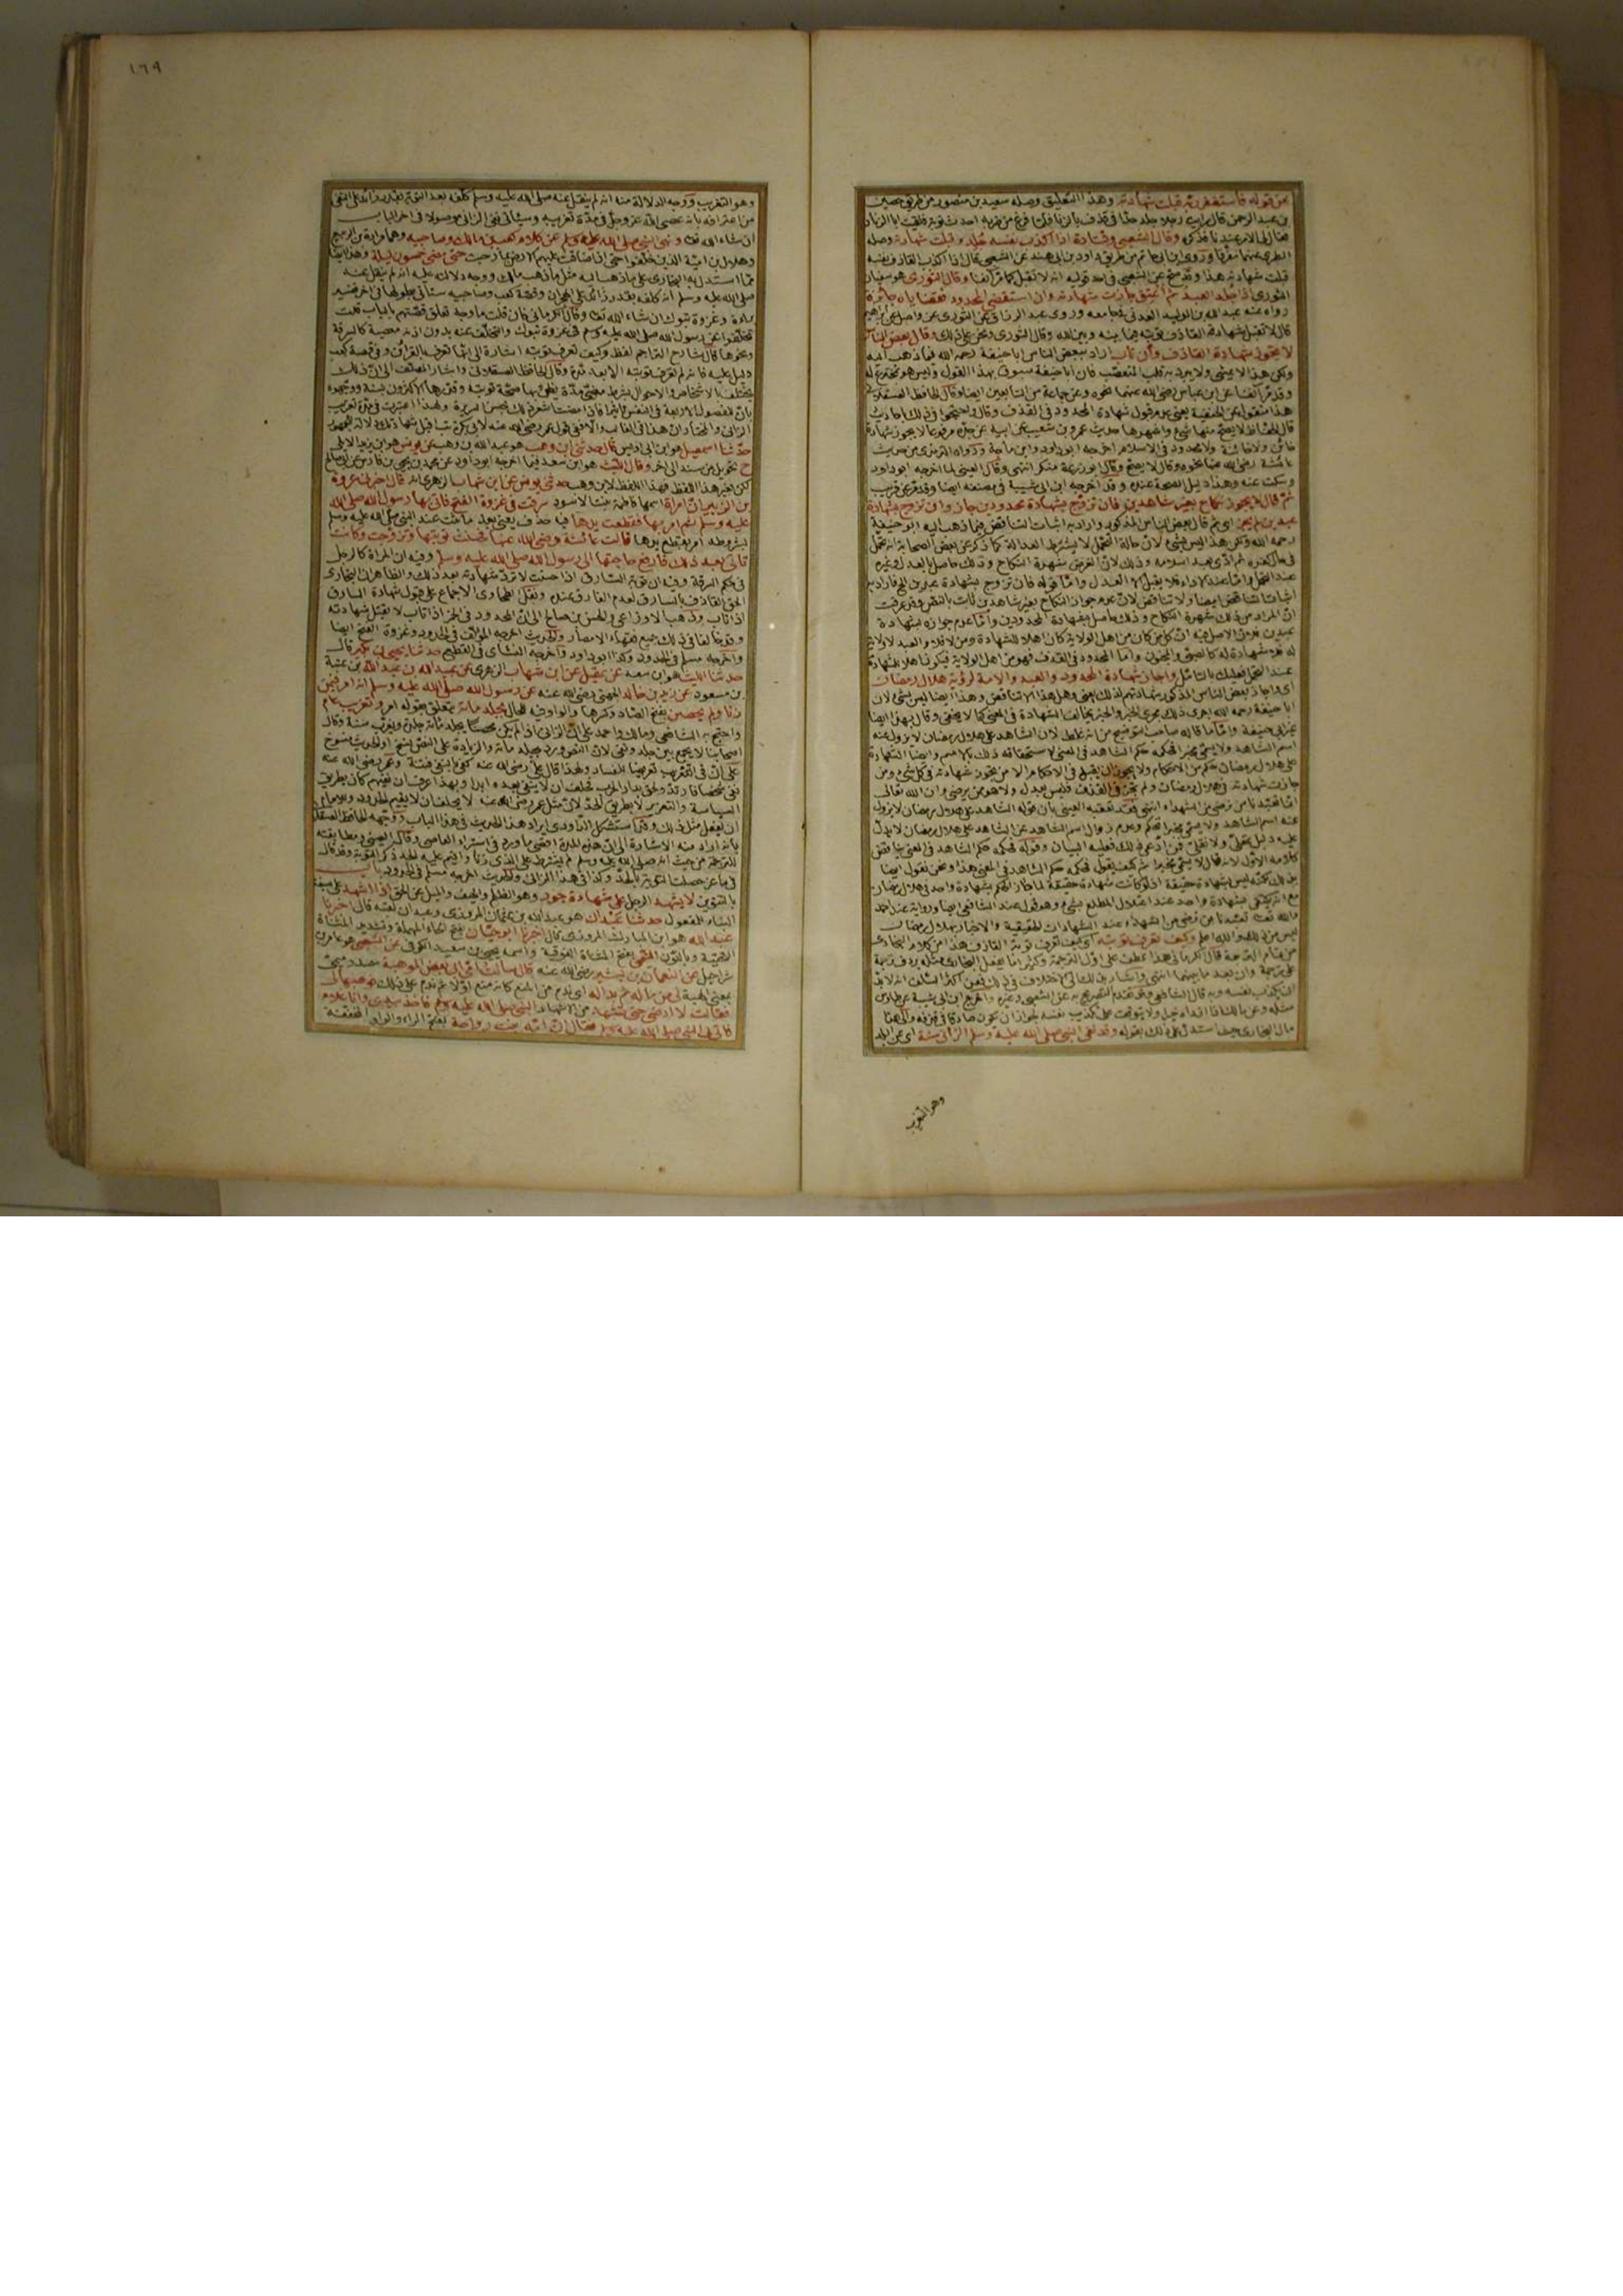 عن قوله فاستغفر ربه قبلت شهادته وهذا التعليق وصله سعيد بن منصور من طريق حصين
بن عبد الرحمن قال رايت رجلا جلد حدا في قذف بالزنا فلما فرغ من ضربه احدث توبة فلقيت ابا الزناد
فقال لي الامر عندنا فذكره وقال الشعبي وقتادة اذا اكذب نفسه جلد وقبلت شهادته وصله
الطبري عنهما مفرقا وروى ابن ابي حاتم من طريق داود بن ابي هند عن الشعبي قال اذا اكذب القاذف نفسه
قبلت شهادته هذا وقد صح عن الشعبي في احد قوليه انه لا تقبل كما مر آنفا وقال الثوري هو سفيان
الثوري اذا جلد العبد ثم اعتق جازت شهادته وان استقضي المحدود فقضاياه جائزة
رواه عنه عبد الله بن الوليد العدني في جامعه وروى عبد الرزاق عن الثوري عن واصل عن ابراهيم
قال لا تقبل شهادة القاذف توبته فيما بينه وبين الله وقال الثوري ونحن على ذلك وقال بعض الناس
لا يجوز شهادة القاذف وان تاب اراد ببعض الناس ابا حنيفة رحمه الله فيما ذهب اليه
ولكن هذا لا يمشي ولا يبرد به قلب المتعصب فان ابا حنيفة مسبوق بهذا القول وليس هو مخترع له
وقد مر آنفا عن ابن عباس رضي الله عنهما نحوه وعن جماعة من التابعين ايضا وقال الحافظ العسقلاني
هذا منقول عن الحنفية يعني عدم قبول شهادة المحدود في القذف وقال واحتجوا في ذلك باحاديث
قال الحفاظ لا يصح منها شيء واشهرها حديث عمرو بن شعيب عن ابيه عن جده مرفوعا لا يجوز شهادة
خائن ولا خائنة ولا محدود في الاسلام اخرجه ابو داود وابن ماجة ورواه الترمذي من حديث
عائشة رضي الله عنها نحوه وقال لا يصح وقال ابو زرعة منكر انتهى وقال العيني لما اخرجه ابو داود
وسكت عنه وهذا دليل الصحة عنده وقد اخرجه ابن ابي شيبة في مصنفه ايضا وقد مر عن قريب
ثم قال لا يجوز نكاح بغير شاهدين فان تزوج بشهادة محدودين جاز وان تزوج بشهادة
عبدين لم يجز اي ثم قال بعض الناس المذكور واراد به اثبات التناقض فيما ذهب اليه ابو حنيفة
رحمه الله ولكن هذا ليس بشيء لان حالة التحمل لا يشترط العدالة كما ذكر عن بعض الصحابة انه تحمل
في حال كفره ثم ادى بعد اسلامه وذلك لان الغرض شهرة النكاح وذلك حاصل بالعدل وغيره
عند التحمل واما عند الاداء فلا يقبل الا العدل واما قوله فان تزوج بشهادة عبدين الخ فاراد به
اثبات التناقض ايضا ولا تناقض لان عدم جواز النكاح بغير شاهدين ثابت بالنص وقد عرفت
ان المراد من ذلك شهرة النكاح وذلك حاصل بشهادة المحدودين واما عدم جوازه بشهادة
عبدين فلان الاصل فيه ان كل من كان من اهل الولاية كان اهلا للشهادة ومن لا فلا والعبد لا ولاية
له فلا شهادة له كالصبي والمجنون واما المحدود في القذف فهو من اهل الولاية فيكون اهلا للشهادة
عند التحمل فعليك بالتأمل واجاز شهادة المحدود والعبد والامة لرؤية هلال رمضان
اي واجاز بعض الناس المذكور شهادتهم لذلك يعني وهل هذا الا تناقض وهذا ايضا ليس بشيء لان
ابا حنيفة رحمه الله اجرى ذلك مجرى الخبر والخبر يخالف الشهادة في المعنى كما لا يخفى وقال بهذا ايضا
غير ابي حنيفة واما ما قاله صاحب التوضيح من انه غلط لان الشاهد على هلال رمضان لا يزول عنه
اسم الشاهد ولا يسمى مخبرا فحكمه حكم الشاهد في المعنى لاستحقاقه ذلك بالاسم وايضا الشهادة
على هلال رمضان حكم من الاحكام ولا يجوز ان يقبل في الاحكام الا من يجوز شهادته في كل شيء ومن
جازت شهادته في هلال رمضان ولم تجز في القذف فليس بعدل ولا هو ممن يرضى وان الله تعالى
انما تعبدنا من نرضى من الشهداء انتهى فقد تعقبه العيني بان قوله الشاهد على هلال رمضان لا يزول
عنه اسم الشاهد ولا يسمى مخبرا تحكم وعدم زوال اسم الشاهد عن الشاهد على هلال رمضان لا يدل
عليه دليل عقلي ولا نقلي فمن ادعى ذلك فعليه البيان وقوله فحكمه حكم الشاهد في المعنى يناقض
كلامه الاول لانه قال لا يسمى مخبرا ثم كيف يقول فحكمه حكم الشاهد في المعنى هذا ونحن نقول ايضا
بذلك لكنه ليس بشهادة حقيقة اذ لو كانت شهادة حقيقة لما جاز الحكم بشهادة واحد في هلال رمضان
مع انه يكتفى بشهادة واحد عند اعتلال المطلع بشيء وهو قول عند الشافعي ايضا ورواية عند احمد
والله تعالى تعبدنا من نرضى من الشهداء عند الشهادات الحقيقية والاخبار بهلال رمضان
ليس من ذلك والله اعلم وكيف تعرف توبته اي كيف تعرف توبة القاذف هذا من كلام البخاري
من تمام الترجمة قال الكرماني هذا عطف على اول الترجمة وكثيرا ما يفعل البخاري مثله يردف ترجمة
على ترجمة وان بعد ما بينهما انتهى واشار بذلك الى الاختلاف في ذلك فعن اكثر السلف انه لا بد
ان يكذب نفسه وبه قال الشافعي وقد تقدم التصريح به عن الشعبي وغيره واخرج ابن ابي شيبة عن طاوس
مثله وعن مالك اذا ازداد خيرا ولا يتوقف على تكذيب نفسه لجواز ان يكون صادقا في قذفه والى هذا
مال البخاري حيث استدل على ذلك بقوله وقد نفى النبي صلى الله عليه وسلم الزاني سنة اي عن البلد
وهو التغريب
١٦٩
وهو التغريب ووجه الدلالة منه انه لم ينقل عنه صلى الله عليه وسلم كلفه بعد التوبة بقدر زائد على النفي
من اعترافه بانه عصى الله عز وجل في مدة تغريبه وسيأتي نفي الزاني موصولا في اخر الباب
ان شاء الله تعالى ونهى النبي صلى الله عليه وسلم عن كلام كعب بن مالك وصاحبيه وهما مرارة بن الربيع
وهلال بن امية الذين خلفوا حتى اذا ضاقت عليهم الارض بما رحبت حتى مضى خمسون ليلة وهذا ايضا
مما استدل به البخاري على ما ذهب اليه مثل ما ذهب مالك ووجه دلالته عليه انه لم ينقل عنه
صلى الله عليه وسلم انه كلفه بقدر زائد على الهجران وقصة كعب وصاحبيه ستأتي بطولها في اخر تفسير
براءة وغزوة تبوك ان شاء الله تعالى وقال الكرماني فان قلت ما وجه تعلق قصتهم بالباب قلت
تخلفوا عن رسول الله صلى الله عليه وسلم في غزوة تبوك والتخلف عنه بدون اذنه معصية كالسرقة
ونحوها قال شارح التراجم لفظ وكيف تعرف توبته اشارة الى انها تعرف بالقرائن وفي قصة كعب
دليل عليه فانه لم تعرف توبته الا بعد مدة وقال الحافظ العسقلاني واشار المصنف الى ان ذلك
يختلف بالاشخاص والاحوال بشرط مضي مدة يظن بها صحة توبته وقدرها الاكثرون بسنة ووجهوه
بان للفصول الاربعة في النفس تأثيرا فاذا مضت اشعر ذلك بحسن السريرة ولهذا اعتبرت في مدة تغريب
الزاني والمختار ان هذا في الغالب والا ففي قول عمر رضي الله عنه لابي بكرة تب اقبل شهادتك دلالة للجمهور
حدثنا اسمعيل هو ابن ابي اويس قال حدثني ابن وهب هو عبد الله بن وهب عن يونس هو ابن يزيد الايلي
ح تحويل من سند الى اخر وقال الليث هو ابن سعد فيما اخرجه ابو داود عن محمد بن يحيى بن فارس عن ابي صالح
لكن بغير هذا اللفظ فهذا اللفظ لابن وهب حدثني يونس عن ابن شهاب الزهري انه قال اخبرني عروة
بن الزبير ان امرأة اسمها فاطمة بنت الاسود سرقت في غزوة الفتح فاتي بها رسول الله صلى الله
عليه وسلم ثم امر بها فقطعت يدها فيه حذف يعني بعد ما ثبت عند النبي صلى الله عليه وسلم
بشروطه امر بقطع يدها قالت عائشة رضي الله عنها فحسنت توبتها وتزوجت وكانت
تأتي بعد ذلك فارفع حاجتها الى رسول الله صلى الله عليه وسلم وفيه ان المرأة كالرجل
في حكم السرقة وفيه ان توبة السارق اذا حسنت لا ترد شهادته بعد ذلك والظاهر ان البخاري
الحق القاذف بالسارق لعدم الفارق عنده ونقل الطحاوي الاجماع على قبول شهادة السارق
اذا تاب وذهب الاوزاعي والحسن بن صالح الى ان المحدود في الخمر اذا تاب لا تقبل شهادته
وقد خالفا في ذلك جميع فقهاء الامصار والحديث اخرجه المؤلف في الحدود وغزوة الفتح ايضا
واخرجه مسلم في الحدود وكذا ابو داود واخرجه النسائي في القطع حدثنا يحيى بن بكير قال
حدثنا الليث هو ابن سعد عن عقيل عن ابن شهاب الزهري عن عبيد الله بن عبد الله بن عتبة
بن مسعود عن زيد بن خالد الجهني رضي الله عنه عن رسول الله صلى الله عليه وسلم انه امر فيمن
زنا ولم يحصن بفتح الصاد وكسرها والواو فيه للحال بجلد مائة يتعلق بقوله امر وتغريب عام
واحتج به الشافعي ومالك واحمد على ان الزاني اذا لم يكن محصنا يجلد مائة جلدة ويغرب سنة وقال
اصحابنا لا يجمع بين جلد ونفي لان النص ورد بجلد مائة والزيادة على النص نسخ او الحديث منسوخ
على ان في التغريب تعريضا للفساد ولهذا قال علي رضي الله عنه كفى بالنفي فتنة وعمر رضي الله عنه
نفى شخصا فارتد ولحق بدار الحرب فحلف ان لا ينفي بعده ابدا وبهذا عرف ان نفيهم كان بطريق
السياسة والتعزير لا بطريق الحد لان مثل عمر رضي الله عنه لا يحلف ان لا يقيم الحدود وللامام
ان يفعل مثل ذلك وقد استشكل الداودي ايراد هذا الحديث في هذا الباب ووجهه الحافظ العسقلاني
بانه اراد منه الاشارة الى ان هذه المدة اقصى ما ورد في استبراء العاصي وقال العيني ومطابقته
للترجمة من حيث انه صلى الله عليه وسلم لم يشترط على الذي زنا واقيم عليه الحد ذكر التوبة وقد قال
في ماعز حصلت التوبة بالحد وكذا في هذا الزاني والحديث اخرجه مسلم في الحدود باب
بالتنوين لا يشهد الرجل على شهادة جور وهو الظلم والحيف والميل عن الحق اذا اشهد على صيغة
البناء للمفعول حدثنا عبدان هو عبد الله بن عثمان المروزي وعبدان لقبه قال اخبرنا
عبد الله هو ابن المبارك المروزي قال اخبرنا ابو حيان بفتح الحاء المهملة وتشديد المثناة
التحتية وبالنون التيمي بفتح المثناة الفوقية واسمه يحيى بن سعيد الكوفي عن الشعبي هو عامر بن
شراحيل عن النعمان بن بشير رضي الله عنه قال سألت امي ابي بعض الموهبة مصدر ميمي
بمعنى الهبة لي من ماله ثم بدا له اي ندم من المنع كانه منع اولا ثم ندم على ذلك فوهبها لي
فقالت لا ارضى حتى تشهد من الاشهاد النبي صلى الله عليه وسلم فاخذ بيدي وانا غلام
فاتى بي النبي صلى الله عليه وسلم فقال ان امه بنت رواحة بفتح الراء والواو المخففة